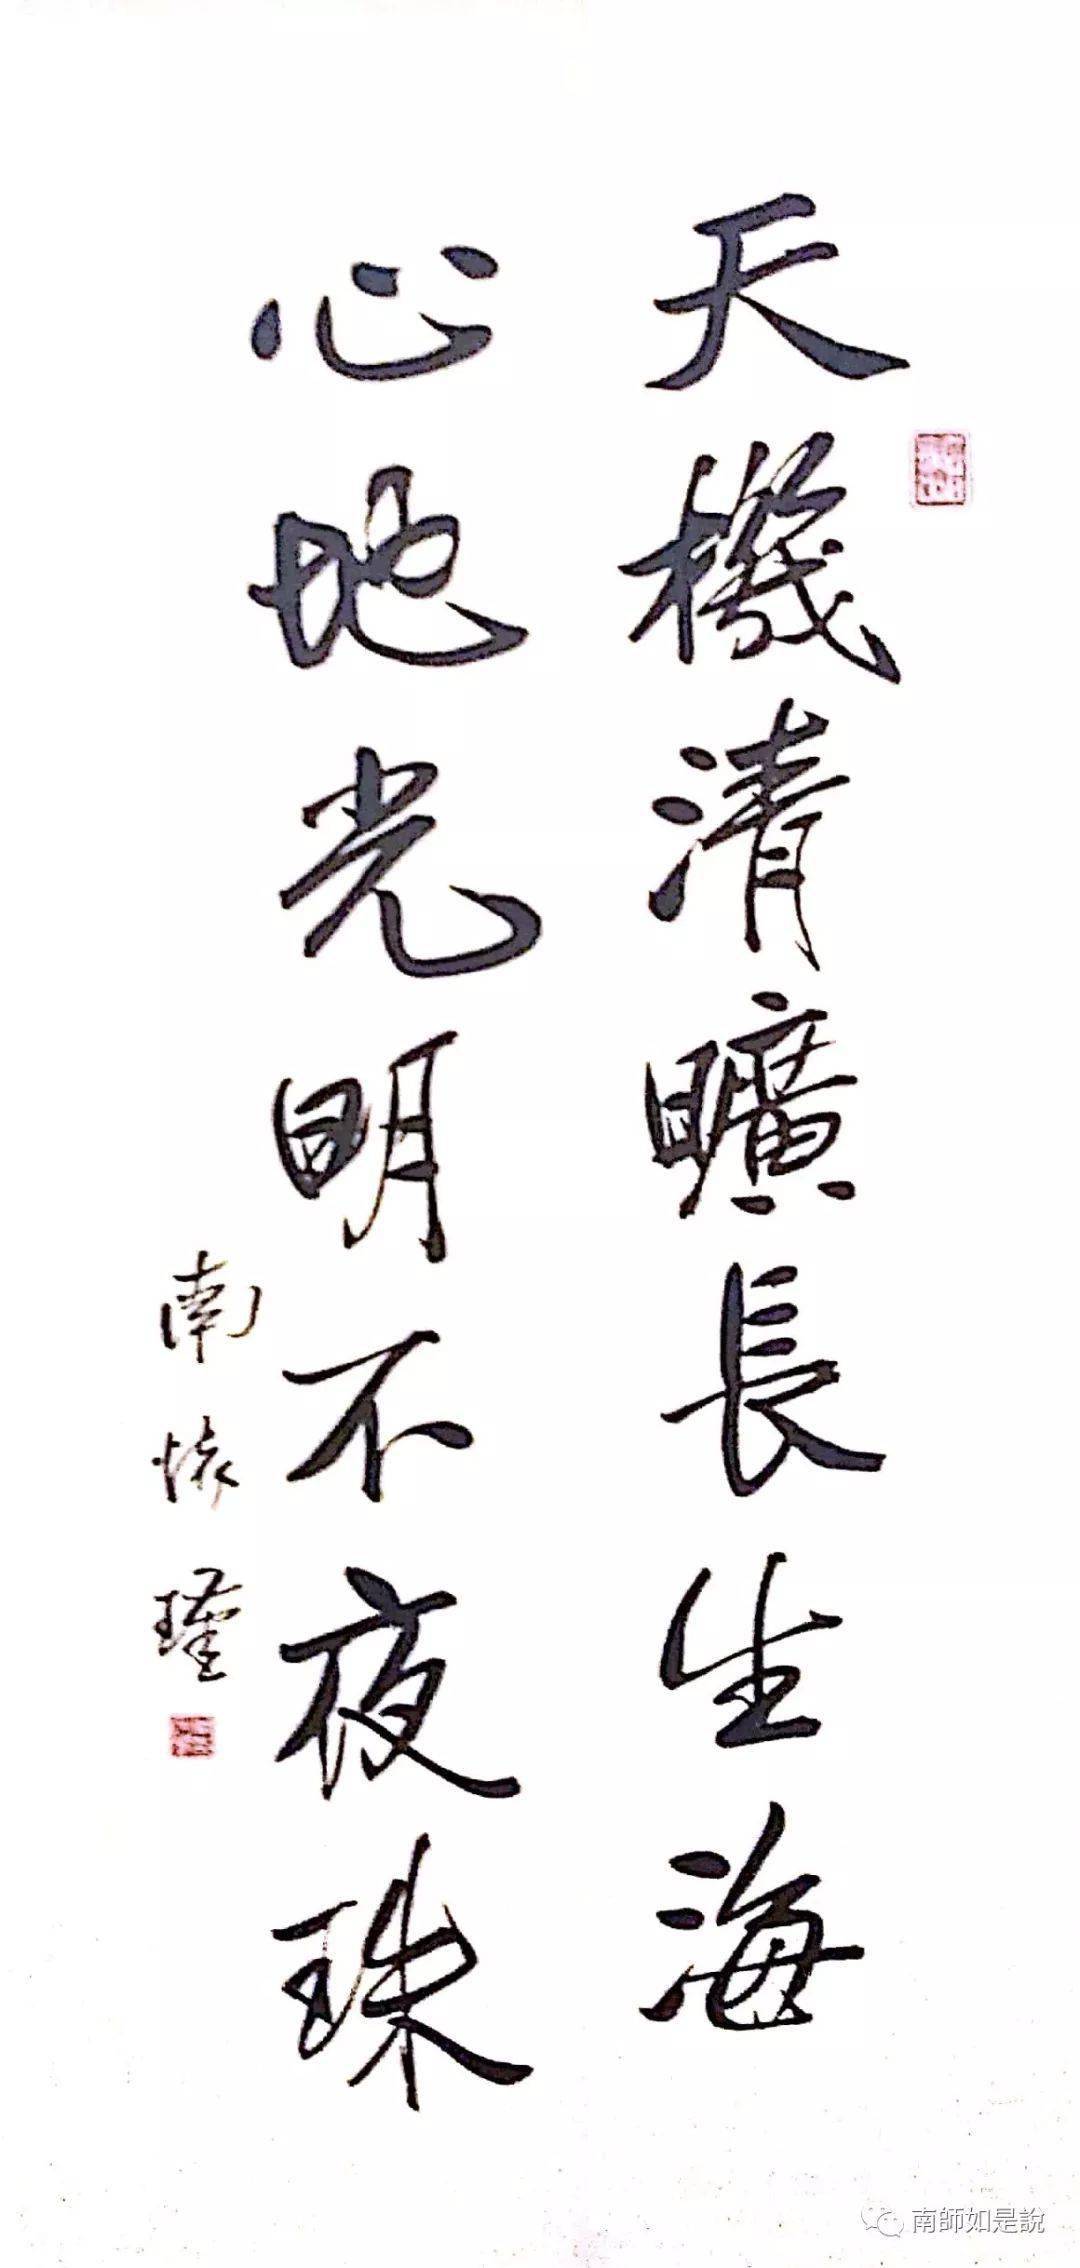 天機清曠長生海
心地光明不夜珠
南懷瑾
南師如是說